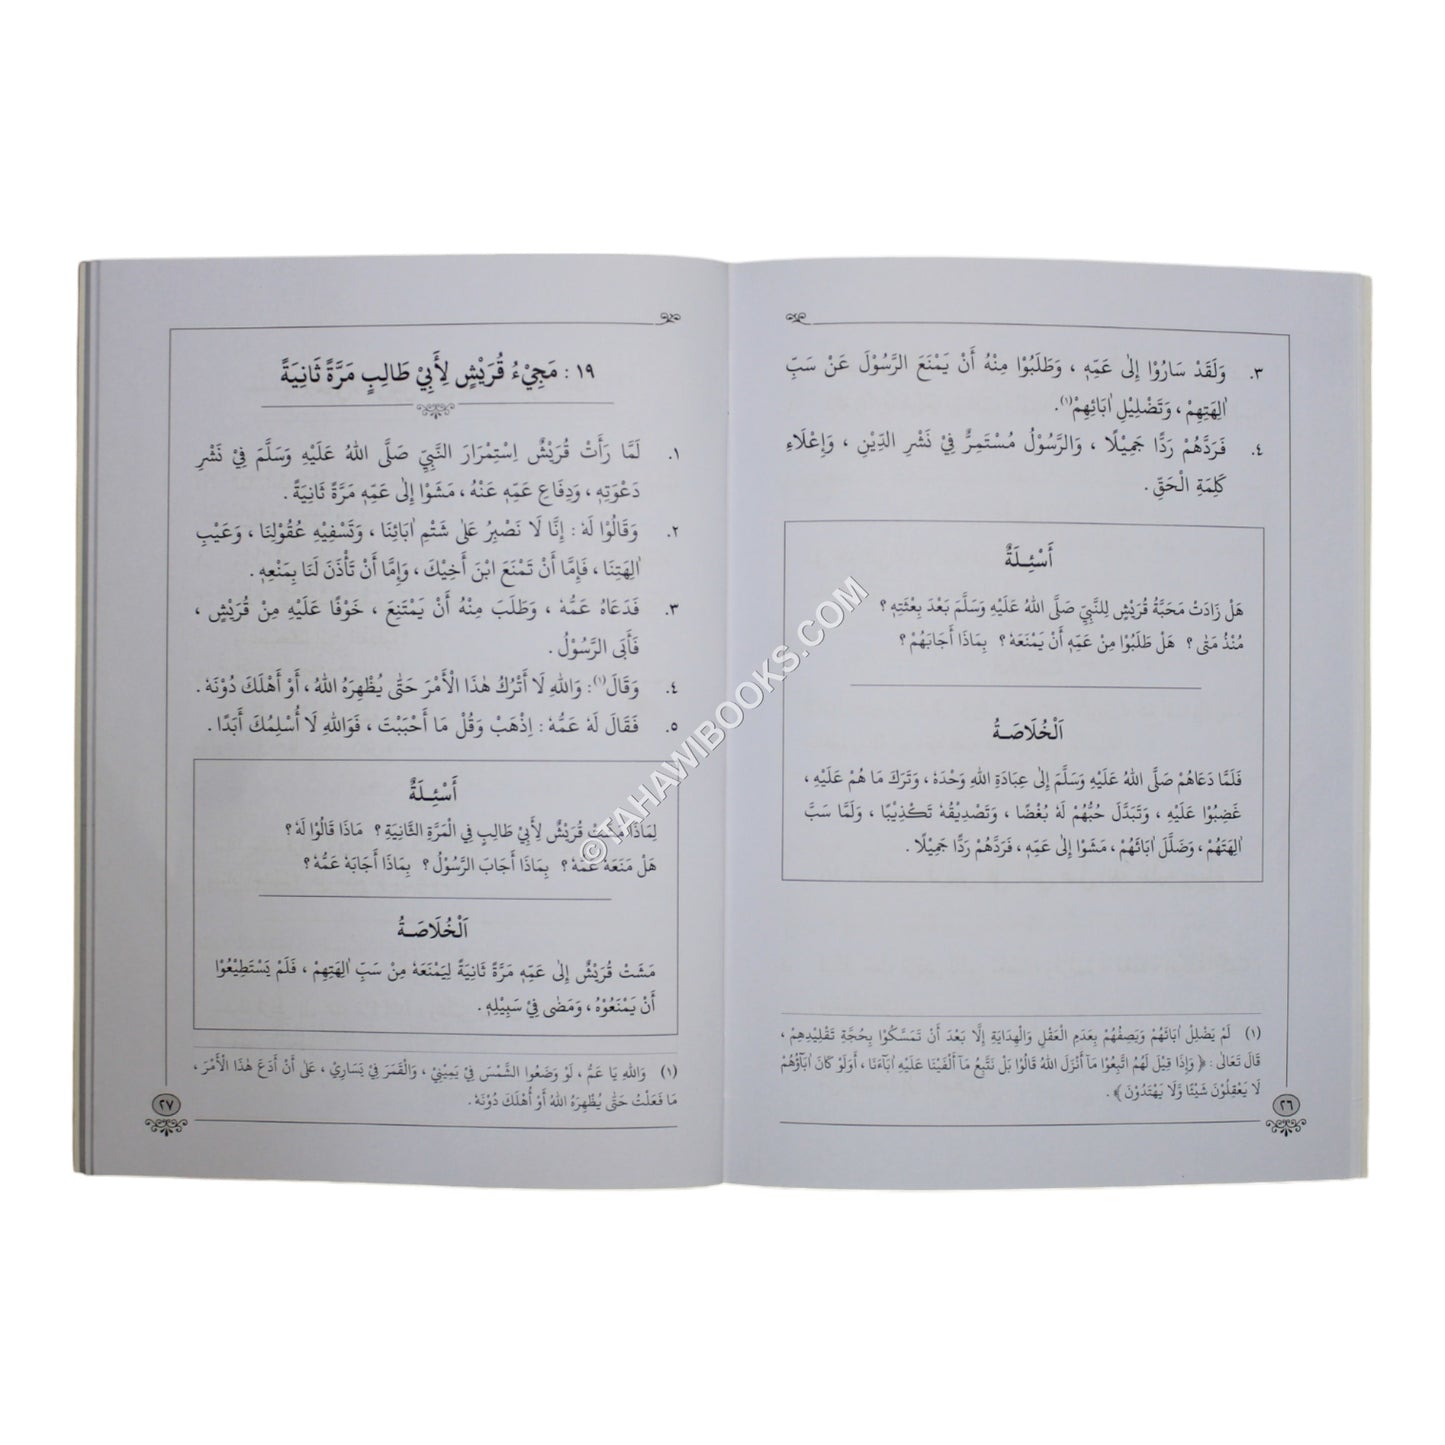 ٣. وَلَقَدْ سَارُوْا إِلٰى عَمِّهٖ ، وَطَلَبُوْا مِنْهُ أَنْ يَمْنَعَ الرَّسُوْلَ عَنْ سَبِّ
اٰلِهَتِهِمْ ، وَتَضْلِيْلِ اٰبَائِهِمْ(١).
٤. فَرَدَّهُمْ رَدًّا جَمِيْلًا ، وَالرَّسُوْلُ مُسْتَمِرٌّ فِيْ نَشْرِ الدِّيْنِ ، وَإِعْلَاءِ
كَلِمَةِ الْحَقِّ .
أَسْئِـلَةٌ
هَلْ زَادَتْ مَحَبَّةُ قُرَيْشٍ لِلنَّبِيِّ صَلَّى اللهُ عَلَيْهِ وَسَلَّمَ بَعْدَ بِعْثَتِهٖ ؟
مُنْذُ مَتٰى ؟ هَلْ طَلَبُوْا مِنْ عَمِّهٖ أَنْ يَمْنَعَهٗ ؟ بِمَاذَا أَجَابَهُمْ ؟
اَلْخُلَاصَـةُ
فَلَمَّا دَعَاهُمْ صَلَّى اللهُ عَلَيْهِ وَسَلَّمَ إِلٰى عِبَادَةِ اللهِ وَحْدَهٗ ، وَتَرْكَ مَا هُمْ عَلَيْهِ ،
غَضِبُوْا عَلَيْهِ ، وَتَبَدَّلَ حُبُّهُمْ لَهٗ بُغْضًا ، وَتَصْدِيْقُهٗ تَكْذِيْبًا ، وَلَمَّا سَبَّ
اٰلِهَتَهُمْ ، وَضَلَّلَ اٰبَائَهُمْ ، مَشَوْا إِلٰى عَمِّهٖ ، فَرَدَّهُمْ رَدًّا جَمِيْلًا .
(١) لَمْ يَضْلِلْ اٰبَائَهُمْ وَيَصِفْهُمْ بِعَدِمِ الْعَقْلِ وَالْهِدَايَةِ إِلَّا بَعْدَ أَنْ تَمَسَّكُوْا بِحُجَّةِ تَقْلِيْدِهِمْ ،
قَالَ تَعَالٰى : ﴿ وَإِذَا قِيْلَ لَهُمُ اتَّبِعُوْا مَآ أَنْزَلَ اللهُ قَالُوْا بَلْ نَتَّبِعُ مَآ أَلْفَيْنَا عَلَيْهِ اٰبَآءَنَا ، أَوَلَوْ كَانَ اٰبَآؤُهُمْ
لَا يَعْقِلُوْنَ شَيْئًا وَّلَا يَهْتَدُوْنَ ﴾ .
٢٦
١٩ : مَجِيْءُ قُرَيْشٍ لِأَبِيْ طَالِبٍ مَرَّةً ثَانِيَةً
١. لَمَّا رَأَتْ قُرَيْشٌ اِسْتِمْرَارَ النَّبِيِّ صَلَّى اللهُ عَلَيْهِ وَسَلَّمَ فِيْ نَشْرِ
دَعْوَتِهٖ ، وَدِفَاعِ عَمِّهٖ عَنْهُ ، مَشَوْا إِلٰى عَمِّهٖ مَرَّةً ثَانِيَةً .
٢. وَقَالُوْا لَهٗ : إِنَّا لَا نَصْبِرُ عَلٰى شَتْمِ اٰبَائِنَا ، وَتَسْفِيْهِ عُقُوْلِنَا ، وَعَيْبِ
اٰلِهَتِنَا ، فَإِمَّا أَنْ تَمْنَعَ ابْنَ أَخِيْكَ ، وَإِمَّا أَنْ تَأْذَنَ لَنَا بِمَنْعِهٖ .
٣. فَدَعَاهُ عَمُّهٗ ، وَطَلَبَ مِنْهُ أَنْ يَمْتَنِعَ ، خَوْفًا عَلَيْهِ مِنْ قُرَيْشٍ ،
فَأَبَى الرَّسُوْلُ .
٤. وَقَالَ(١): وَاللهِ لَا أَتْرُكُ هٰذَا الْأَمْرَ حَتّٰى يُظْهِرَهُ اللهُ ، أَوْ أَهْلَكَ دُوْنَهٗ .
٥. فَقَالَ لَهٗ عَمُّهٗ : اِذْهَبْ وَقُلْ مَا أَحْبَبْتَ ، فَوَاللهِ لَا أُسْلِمُكَ أَبَدًا .
أَسْئِـلَةٌ
لِمَاذَا مَشَتْ قُرَيْشٌ لِأَبِيْ طَالِبٍ فِي الْمَرَّةِ الثَّانِيَةِ ؟ مَاذَا قَالُوْا لَهٗ ؟
هَلْ مَنَعَهٗ عَمُّهٗ ؟ بِمَاذَا أَجَابَ الرَّسُوْلُ ؟ بِمَاذَا أَجَابَهٗ عَمُّهٗ ؟
اَلْخُلَاصَـةُ
مَشَتْ قُرَيْشٌ إِلٰى عَمِّهٖ مَرَّةً ثَانِيَةً لِيَمْنَعَهٗ مِنْ سَبِّ اٰلِهَتِهِمْ ، فَلَمْ يَسْتَطِيْعُوْا
أَنْ يَمْنَعُوْهُ ، وَمَضٰى فِيْ سَبِيْلِهٖ .
(١) وَاللهِ يَا عَمُّ ، لَوْ وَضَعُوا الشَّمْسَ فِيْ يَمِيْنِيْ ، وَالْقَمَرَ فِيْ يَسَارِيْ ، عَلٰى أَنْ أَدَعَ هٰذَا الْأَمْرَ ،
مَا فَعَلْتُ حَتّٰى يُظْهِرَهُ اللهُ أَوْ أَهْلَكَ دُوْنَهٗ .
٢٧
©TAHAWIBOOKS.COM